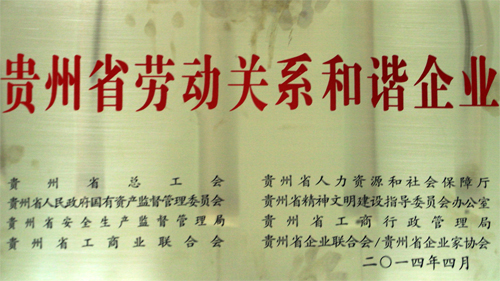 贵州省劳动关系和谐企业
贵州省总工会
贵州省人民政府国有资产监督管理委员会
贵州省安全生产监督管理局
贵州省工商业联合会
贵州省人力资源和社会保障厅
贵州省精神文明建设指导委员会办公室
贵州省工商行政管理局
贵州省企业联合会/贵州省企业家协会
二〇一四年四月